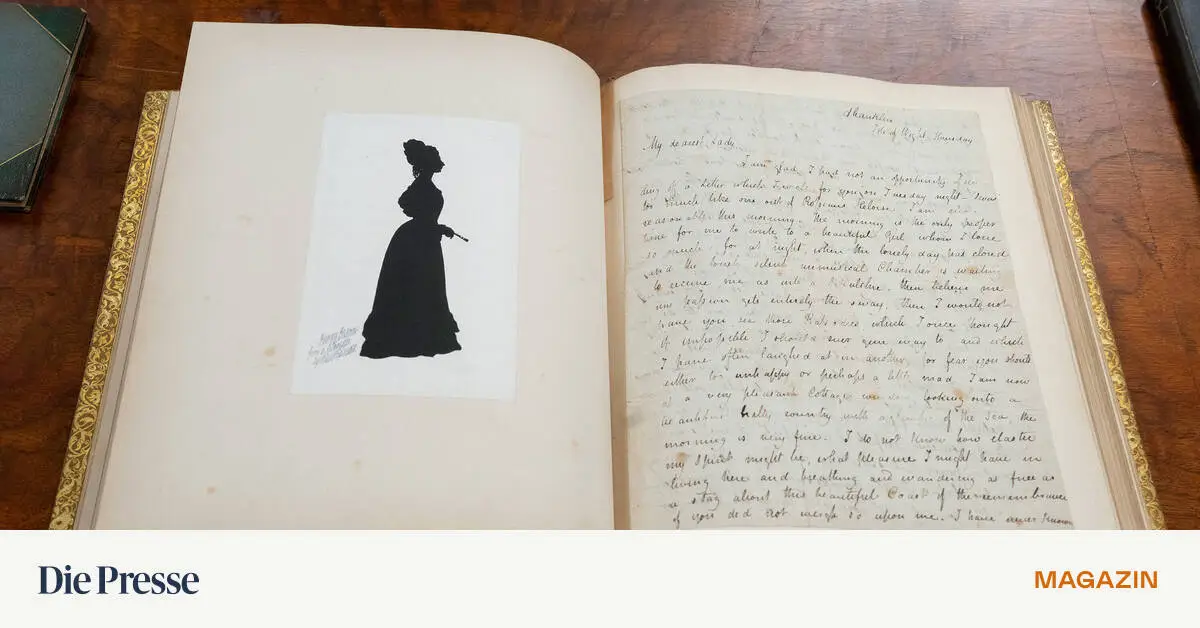 Shanklin
Isle of Wight Thursday
My dearest Lady
I am glad I had not an opportunity of sen
ding off a Letter which I wrote for you on Tuesday night - twas
too much like one out of Heloise. I am
reasonable this morning. The morning is the only proper
time for me to write to a beautiful Girl whom I love
so much: for at night, when the lonely day has closed
and the lonely silent unmusical Chamber is waiting
to receive me as into a Sepulchre, then believe me
my passion gets entirely the sway, then I would not
have you see those Rapsodies which I once thought
it impossible I should ever give way to and which
I have often laughed at in another, for fear you should
either too unhappy or perhaps a little mad. I am now
at a very pleasant Cottage window looking onto a
beautiful hilly country with a of the sea, the
morning is very fine. I do not know how elastic
my spirit might be, what pleasure I might have in
living here and breathing and wandering as free as
a stag about this beautiful Coast if the remembrance
of you did not weigh so upon me. I have never known
Die Presse
MAGAZIN